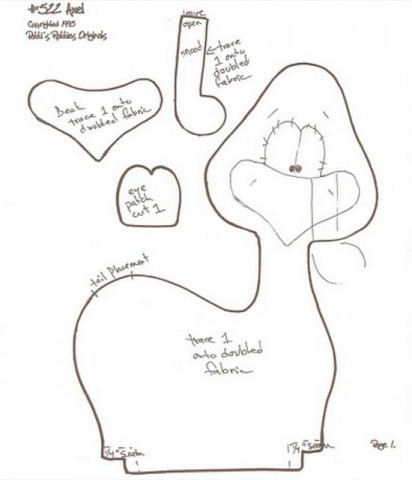 #522 Axel
Copyrighted 1995
Raldi's Raldies Originals
leave
open
snood
← trace
1 onto
doubled
fabric
Beak
trace 1 onto
doubled fabric
eye
patch
cut 1
tail placement
trace 1
onto doubled
fabric
1/4" seam
1/4" seam
Page 1.